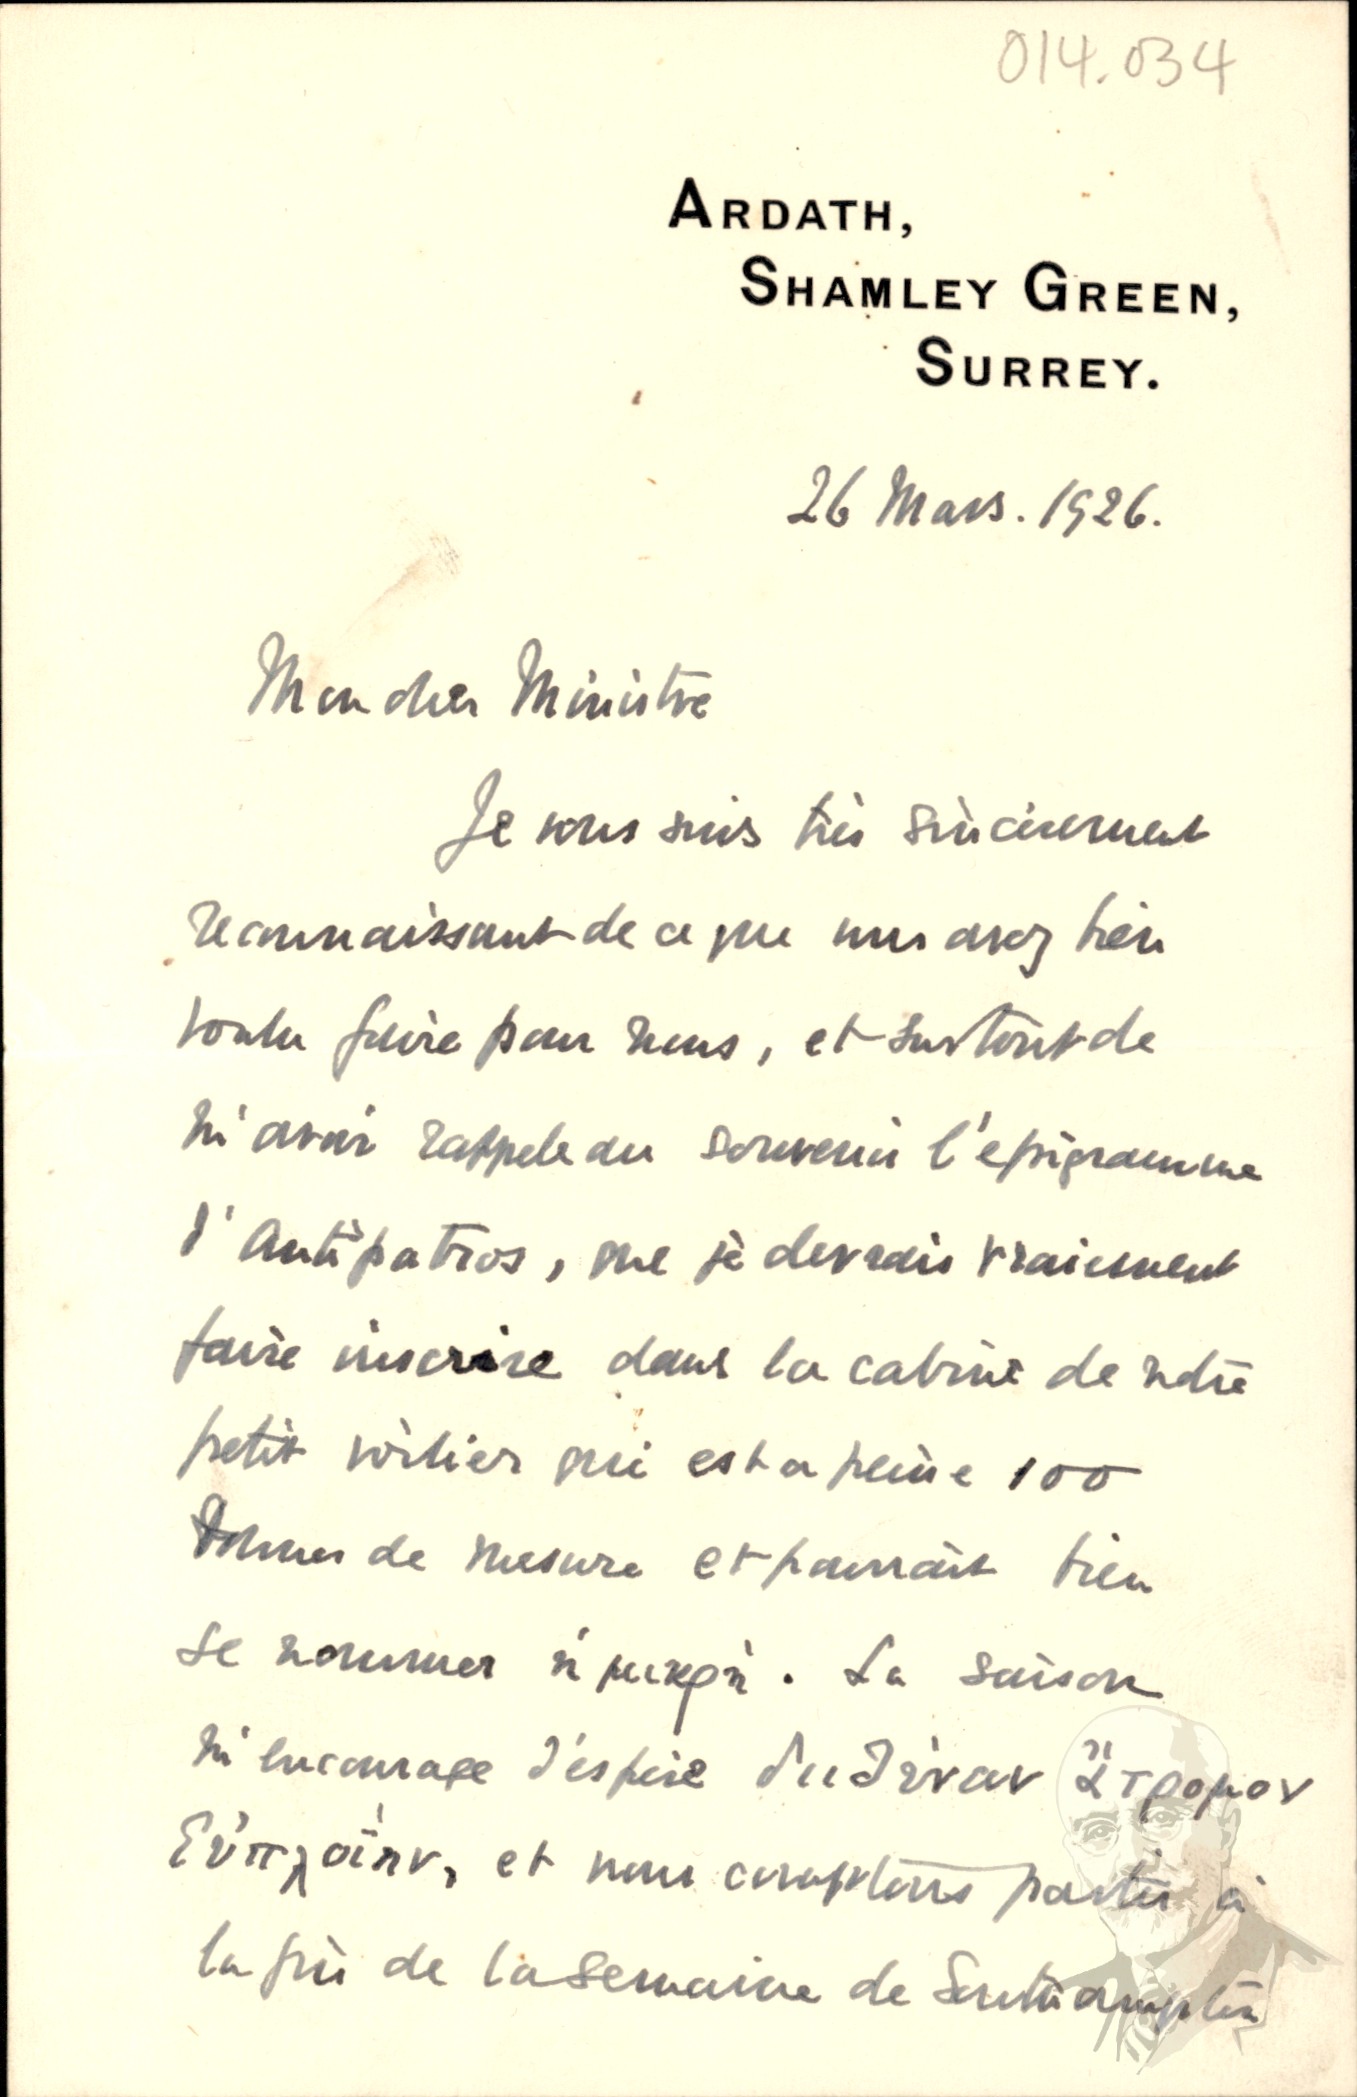 014.034
ARDATH,
SHAMLEY GREEN,
SURREY.
26 Mars. 1926.
Mon cher Ministre
Je vous suis très sincèrement
reconnaissant de ce que vous avez bien
voulu faire pour nous, et surtout de
m'avoir rappelé au souvenir l'épigramme
d'Antipatros, que je devrais vraiement
faire inscrire dans la cabine de notre
petit voilier qui est a peine 100
tonnes de mesure et pourrait bien
se nommer ἡ μικρὴ. La saison
m'encourage d'espérer ἄτρομον
εὐπλοΐην, et nous comptons partir à
la fin de la semaine de Southampton